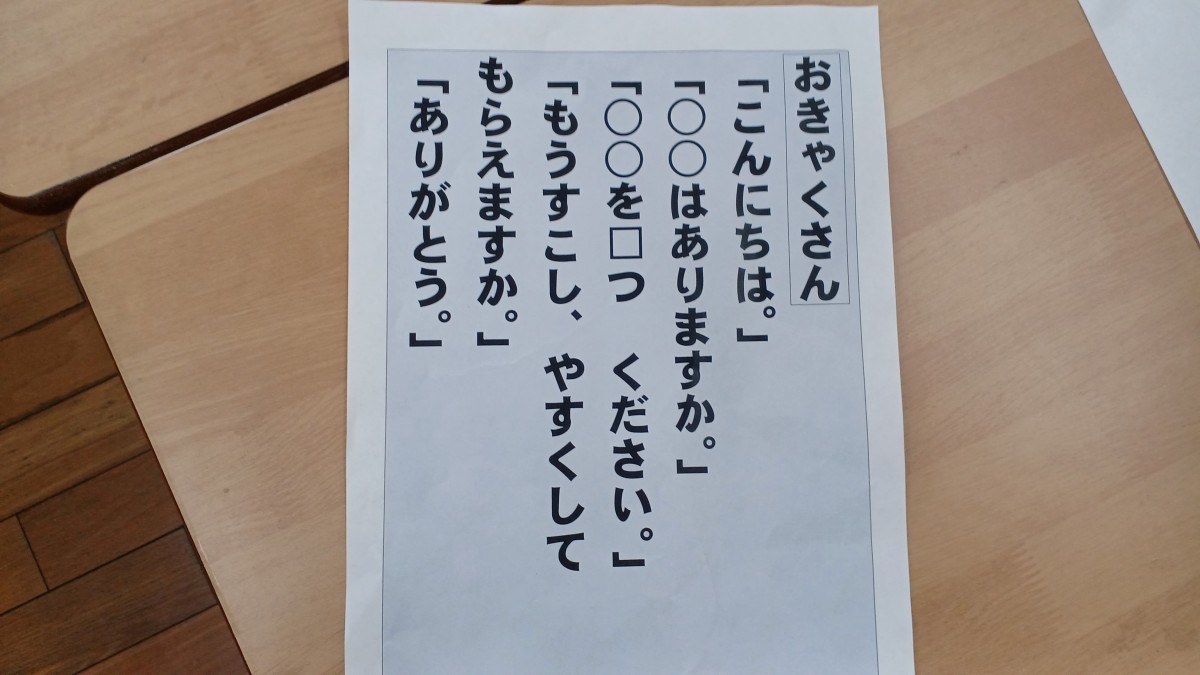 おきゃくさん
「こんにちは。」
「○○はありますか。」
「○○を□つ　ください。」
「もうすこし、やすくして
もらえますか。」
「ありがとう。」